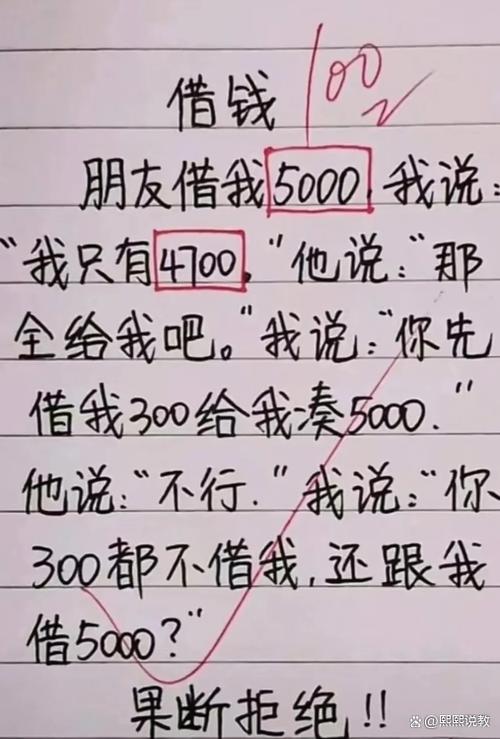 借钱 100
朋友借我5000,我说:
“我只有4700.“他说:“那
全给我吧。”我说:“你先
借我300给我凑5000.”
他说:“不行.”我说:“你、
300都不借我,还跟我
借5000?”
果断拒绝!!
@熙熙说教